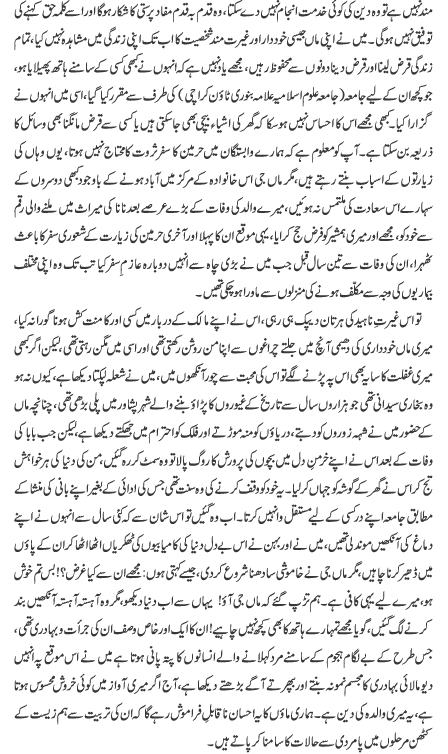 مند نہیں ہے تو وہ دین کی کوئی خدمت انجام نہیں دے سکتا، وہ قدم بہ قدم مفاد پرستی کا شکار ہوگا اور اسے کلمۂ حق کہنے کی
توفیق نہیں ہوگی۔ میں نے اپنی ماں جیسی خوددار اور غیرت مند شخصیت کا اب تک اپنی زندگی میں مشاہدہ نہیں کیا، تمام
زندگی قرض لینا اور قرض دینا دونوں سے محفوظ رہیں، مجھے یاد نہیں ہے کہ انہوں نے کبھی کسی کے سامنے ہاتھ پھیلایا ہو،
جو کچھ ان کے لیے جامعہ (جامعہ علوم اسلامیہ علامہ بنوری ٹاؤن کراچی) کی طرف سے مقرر کیا گیا، اسی میں انہوں نے
گزارا کیا۔ کبھی مجھے اس کا احساس نہیں ہوسکا کہ گھر کی اشیاء بیچی بھی جاسکتی ہیں یا کسی سے قرض مانگنا بھی وسائل کا
ذریعہ بن سکتا ہے۔ آپ کو معلوم ہے کہ ہمارے وابستگان میں حرمین کا سفر ثروت کا محتاج نہیں ہوتا، یوں وہاں کی
زیارتوں کے اسباب بنتے رہتے ہیں، مگر ماں جی اس خانوادہ کے مرکز میں آباد ہونے کے باوجود کبھی دوسروں کے
سہارے اس سعادت کی ملتمس نہ ہوئیں، میرے والد کی وفات کے بڑے عرصے بعد نانا کی میراث میں ملنے والی رقم
سے خود کو، مجھے اور میری ہمشیر کو فرض حج کرایا، یہی موقع ان کا پہلا اور آخری حرمین کی زیارت کے شعوری سفر کا باعث
ٹھہرا، ان کی وفات سے تین سال قبل جب میں نے بڑی چاہ سے انہیں دوبارہ عازمِ سفر کیا تب تک وہ اپنی مختلف
بیماریوں کی وجہ سے مکلف ہونے کی منزلوں سے ماورا ہوچکی تھیں۔
تو اس غیرتِ ناہید کی ہر تان دیپک ہی رہی، اس نے اپنے مالک کے دربار میں کسی اور کا منت کش ہونا گورا نہ کیا،
میری ماں خودداری کی دھیمی آنچ میں جلتے چراغوں سے اپنا من روشن رکھتی تھی اور اسی میں مگن رہتی تھی، لیکن اگر کبھی
میری غفلت کا سایہ بھی اس پہ پڑنے لگے تو اس کی محبت سے چور آنکھوں میں، میں نے شعلہ لپکتا دیکھا ہے، کیوں نہ ہو
وہ بخاری سیدانی تھی جو ہزاروں سال سے تاریخ کے غیوروں کا پڑاؤ بننے والے شہر پشاور میں پلی بڑھی تھی، چنانچہ ماں
کے حضور میں نے شہہ زوروں کو دبتے، دریاؤں کو منہ موڑتے اور فلک کو احترام میں جھکتے دیکھا ہے، لیکن جب بابا کی
وفات کے بعد اس نے اپنے خرمنِ دل میں بچوں کی پرورش کا روگ پالا تو وہ سمٹ کر رہ گئیں، من کی دنیا کی ہر خواہش
تج کر اس نے گھر کے گوشہ کو جہاں کر لیا۔ یہ خود کو وقف کرنے کی وہ سنت تھی جس کی ادائی کے بغیر اپنے بانی کی منشا کے
مطابق جامعہ اپنے در کسی کے لیے مستقل وا نہیں کرتا۔ اب وہ گئیں تو اس شان سے کہ کئی سال سے انہوں نے اپنے
دماغ کی آنکھیں موندلی تھیں، میں نے اور بہن نے اس بے دل دنیا کی کامیابیوں کی ٹھکریاں اٹھا اٹھا کر ان کے پاؤں
میں ڈھیر کرنا چاہیں، مگر ماں جی نے خاموشی سادھنا شروع کردی، جیسے کہتی ہوں: مجھے ان سے کیا غرض؟!! بس تم خوش
ہو، میرے لیے یہی کافی ہے۔ ہم تڑپ گئے کہ ماں جی آؤ! یہاں سے اب دنیا دیکھو، مگر وہ آہستہ آہستہ آنکھیں بند
کرنے لگ گئیں، گویا مجھے تمہارے ہاتھ کا بھی کچھ نہیں چاہیے! ان کا ایک اور خاص وصف ان کی جرأت و بہادری تھی،
جس طرح کے بے لگام ہجوم کے سامنے مرد کہلانے والے انسانوں کا پتہ پانی ہوتا ہے میں نے اس موقع پہ انہیں
دیومالائی بہادری کا مجسم نمونہ بنتے اور بپھرتے آگے بڑھتے دیکھا ہے، آج اگر میری آواز میں کوئی خروش محسوس ہوتا
ہے، یہ میری والدہ کی دین ہے۔ ہماری ماؤں کا یہ احسان ناقابلِ فراموش رہے گا کہ ان کی تربیت سے ہم زیست کے
کٹھن مرحلوں میں پامردی سے حالات کا سامنا کرپاتے ہیں۔